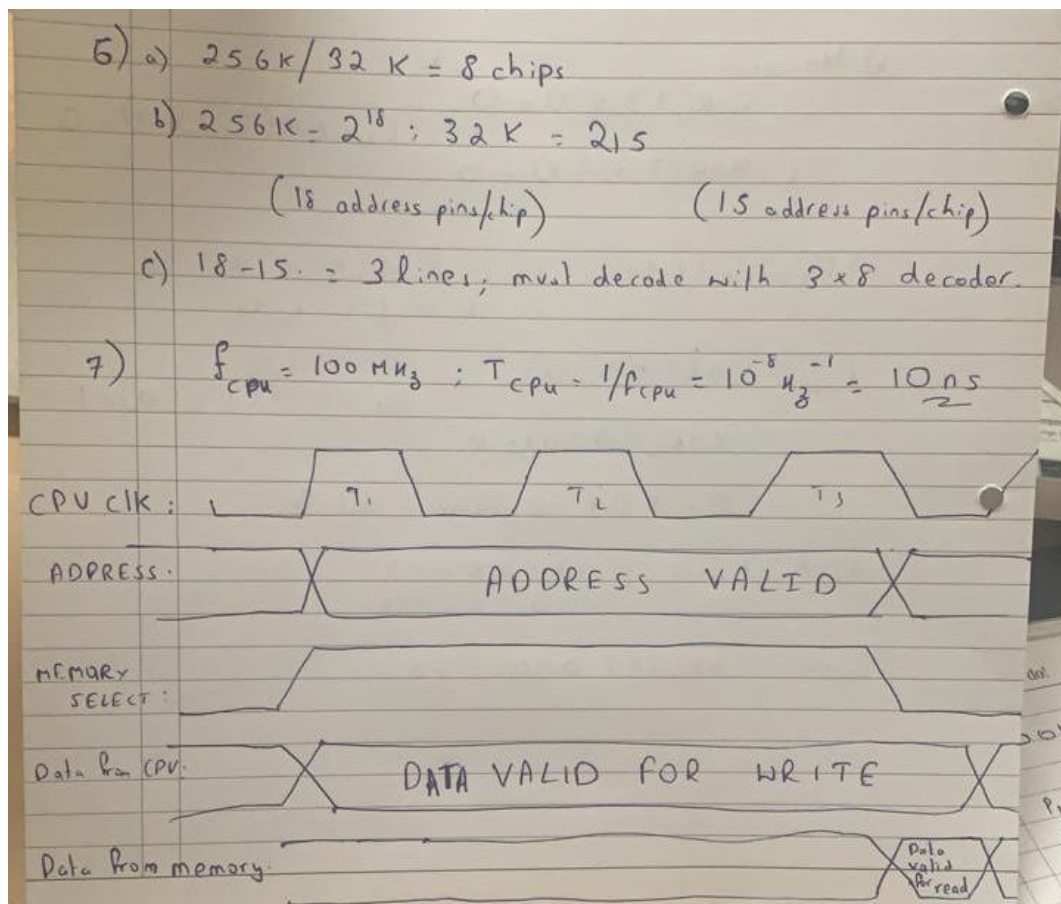 6) a) 256K/32 K = 8 chips
b) 256K = 2^18 ; 32 K = 215
(18 address pins/chip) (15 address pins/chip)
c) 18-15. = 3 lines; must decode with 3x8 decoder.
7) fcpu = 100 MHz ; Tcpu = 1/fcpu = 10^-8 Hz^-1 = 10 ns
CPU clk : T1 T2 T3
ADDRESS. ADDRESS VALID
MEMORY
SELECT :
Data from CPU. DATA VALID FOR WRITE
Data from memory. Data
valid
for read